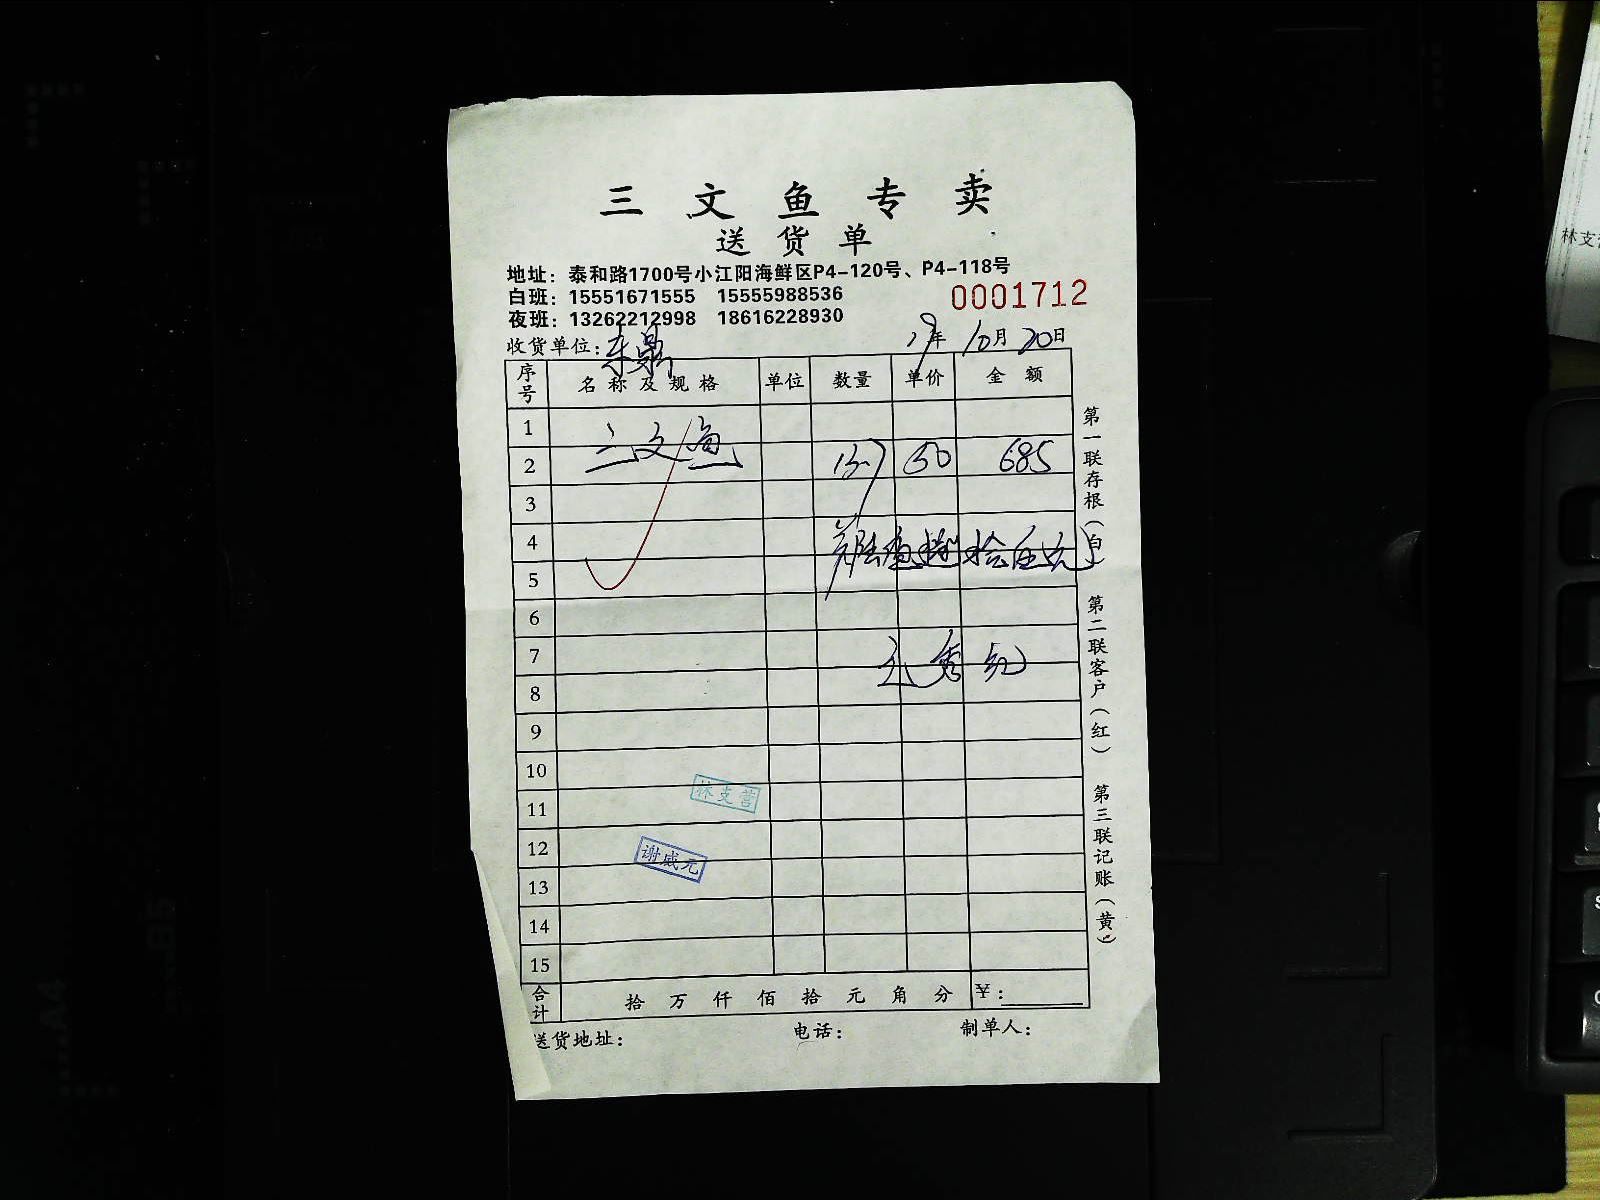 三文鱼专卖
送货单
地址：泰和路1700号小江阳海鲜区P4-120号、P4-118号
白班：15551671555 15555988536
0001712
夜班：13262212998 18616228930
收货单位：东鼎 19年10月20日
序号 名称及规格 单位 数量 单价 金额
1
2 三文鱼 13.7 50 685
3
4
5
陆佰捌拾伍元
6
7
8
秀红
9
10
11
林支营
12
谢咸元
13
14
15
合计 拾万仟佰拾元角分 ¥：
送货地址： 电话： 制单人：
第一联存根（白） 第二联客户（红） 第三联记账（黄）
林支